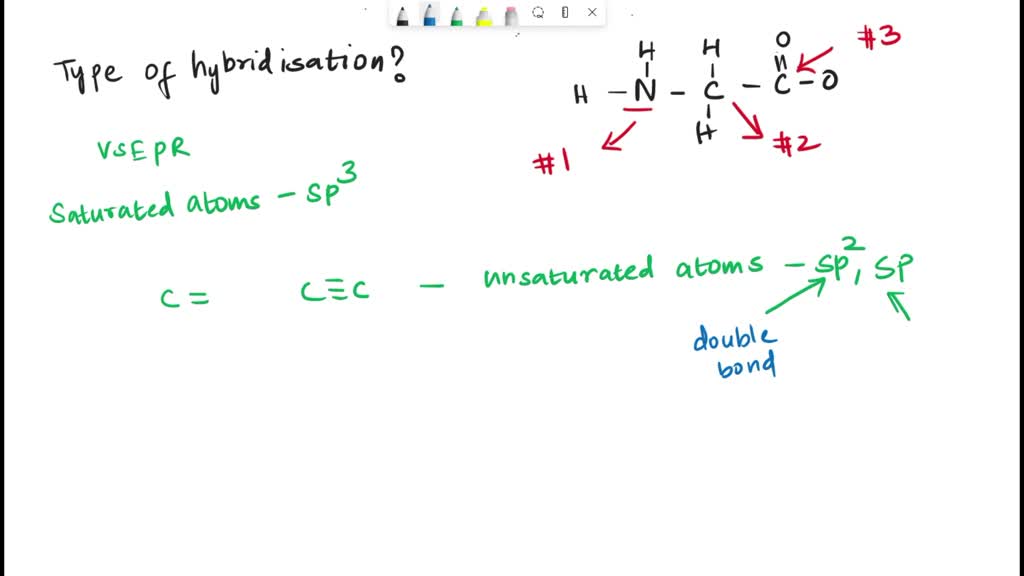 Type of hybridisation?
H O #3
H H ॥
H – N – C – C – O
H #2
#1
VSEPR
Saturated atoms – SP³
C = C≡C – unsaturated atoms – SP², SP
double
bond